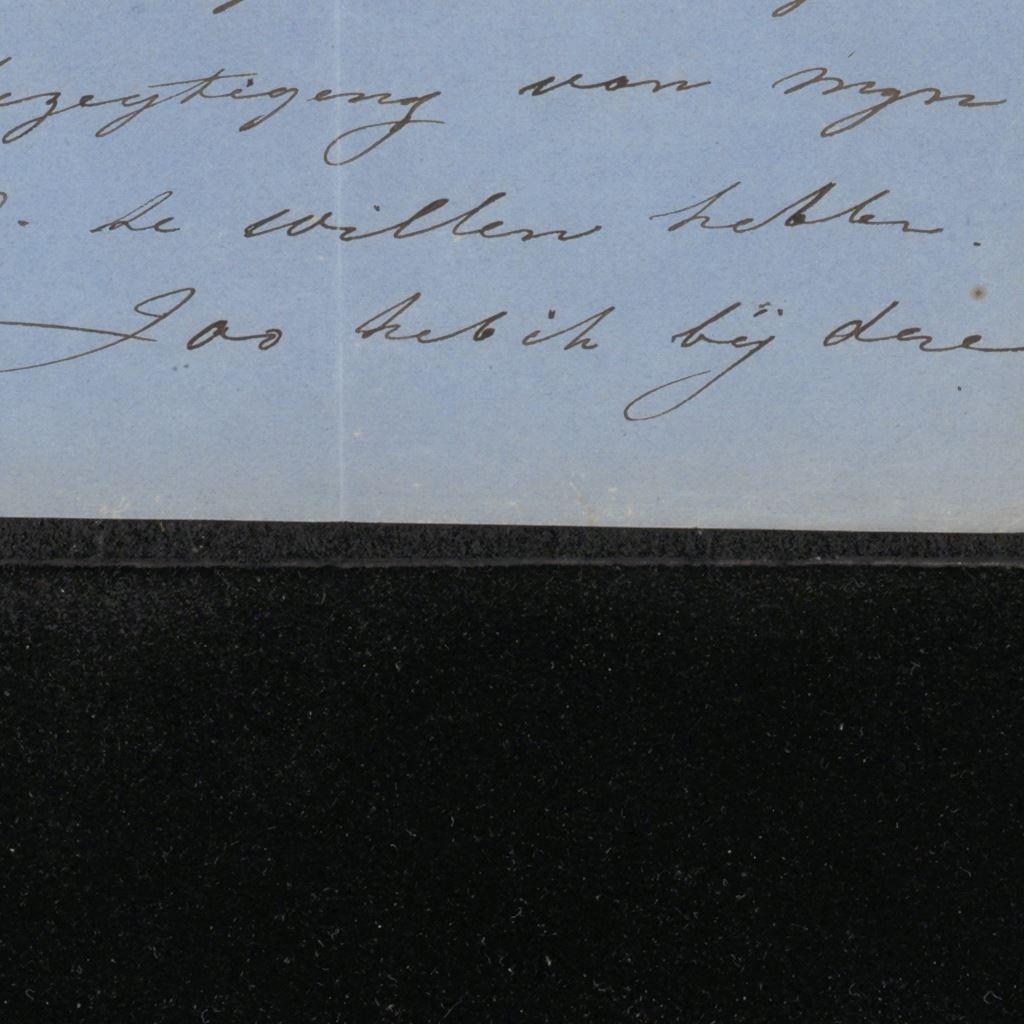 bezegtiging van mijn
te willen hebben.
Zoo heb ik bij deze